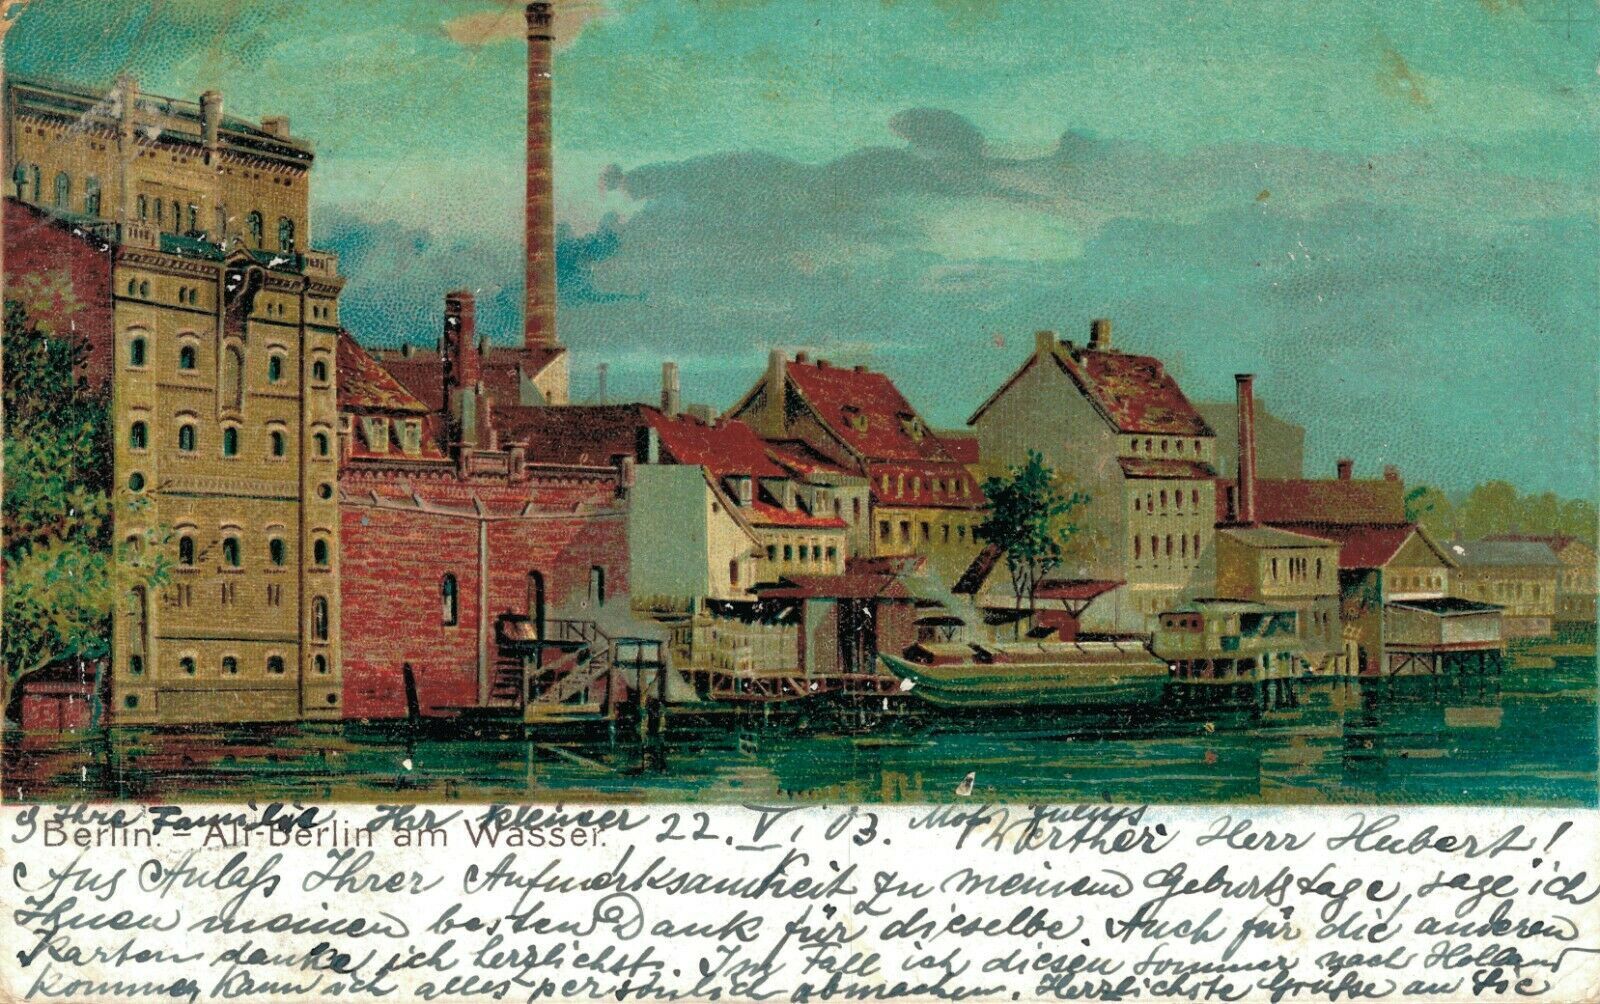 Berlin. - Alt-Berlin am Wasser.
22. VI. 03. Werther Herr Hubert!
Aus Anlaß Ihrer Aufmerksamkeit zu meinem Geburtstage, sage ich
Ihnen meinen besten Dank für dieselbe. Auch für die anderen
Karten danke ich herzlichst. Im Fall ich diesen Sommer nach Holland
kommen, kann ich alles persönlich abmachen. Herzlichste Grüße an Sie
Ihre Familie, Ihr kleiner Julius